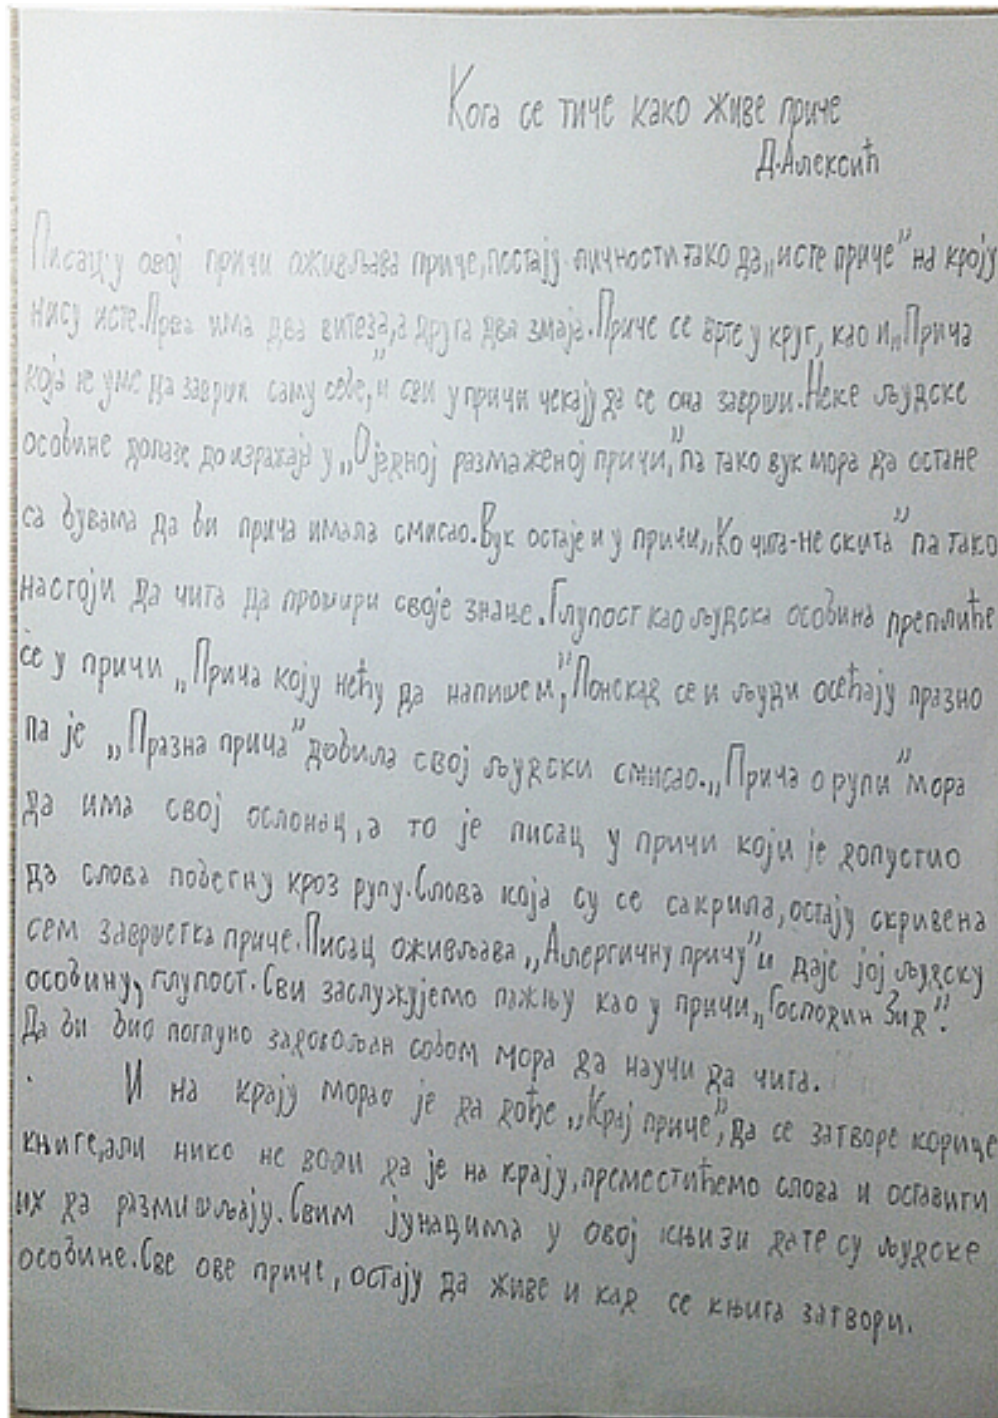 Кога се тиче како живе приче
Д.Алексић
Писац у овој причи оживљава приче, постају личности тако да „исте приче” на кроју
нису исте. Прва има два витеза, а друга два змаја. Приче се врте у круг, као и „Прича
која не уме да заврши саму себе”, и сви у причи чекају да се она заврши. Неке људске
особине долазе до изражаја у „О једној размаженој причи”, па тако вук мора да остане
са бувама да би прича имала смисао. Вук остаје и у причи „Ко чита-не скита” па тако
настоји да чита да прошири своје знање. Глупост као људска особина преплиће
се у причи „Прича коју нећу да напишем”, Понекад се и људи осећају празно
па је „Празна прича” добила свој људски смисао. „Прича о рупи” мора
да има свој ослонац, а то је писац у причи који је допустио
да слова побегну кроз рупу. Слова која су се сакрила, остају скривена
сем завршетка приче. Писац оживљава „Алергичну причу” и даје јој људску
особину, глупост. Сви заслужујемо пажњу као у причи „Господин Зид”.
Да би био потпуно задовољан собом мора да научи да чита.
И на крају морао је да дође „Крај приче”, да се затворе корице
књиге, али нико не воли да је на крају, преместићемо слова и оставити
их да размишљају. Свим јунацима у овој књизи дате су људске
особине. Све ове приче, остају да живе и кад се књига затвори.